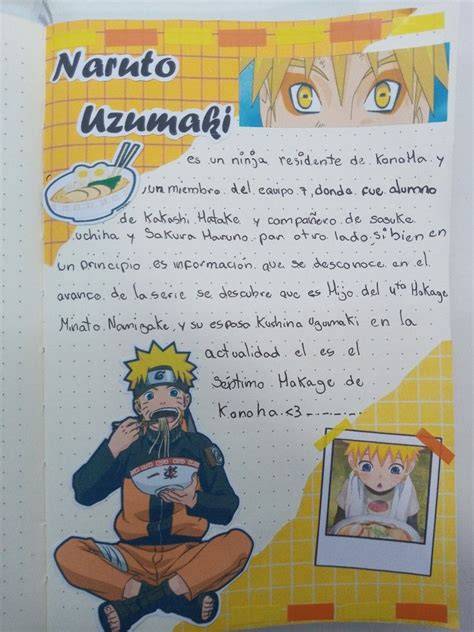 Naruto
Uzumaki
es un ninja residente de KonoHa y
un miembro del equipo 7, donde fue alumno
de Kakashi Hatake y compañero de sasuke
uchiha y Sakura Haruno. pan otro lado, si bien en
un principio es información que se desconoce en el
avance de la serie se descubre que es Hijo del 4to Hokage
Minato Namigake y su esposo Kushina Uzumaki en la
actualidad el es el
Septimo Hokage de
Konoha.<3
一楽